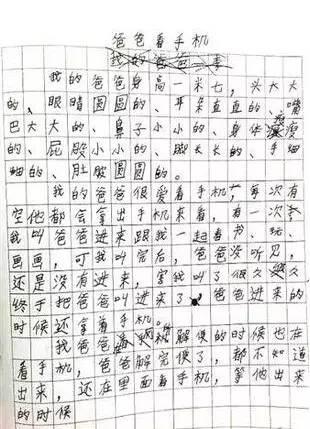 爸爸看手机
我的爸爸一事
我的爸爸身高一米七，头大大
的、眼睛圆圆的、耳朵直直的、嘴
巴大大的、鼻子小小的、身体瘦瘦
的、屁股小小的、脚长长的、手细
细的、肚皮圆圆的。
我的爸爸很爱看手机，每次有
空他都会拿出手机来看，有一次
我叫爸爸进来跟我一起看书、玩、
画画，可我叫完后，爸爸没听见，
还是没有进来，害我叫了很久很久
终于把爸爸叫进来了，爸爸进来的
时候还拿着手机。
我爸爸解便的时候也在
看手机，爸爸解完便了，都不知道
出来，还在里面看手机，等他出来
的时候